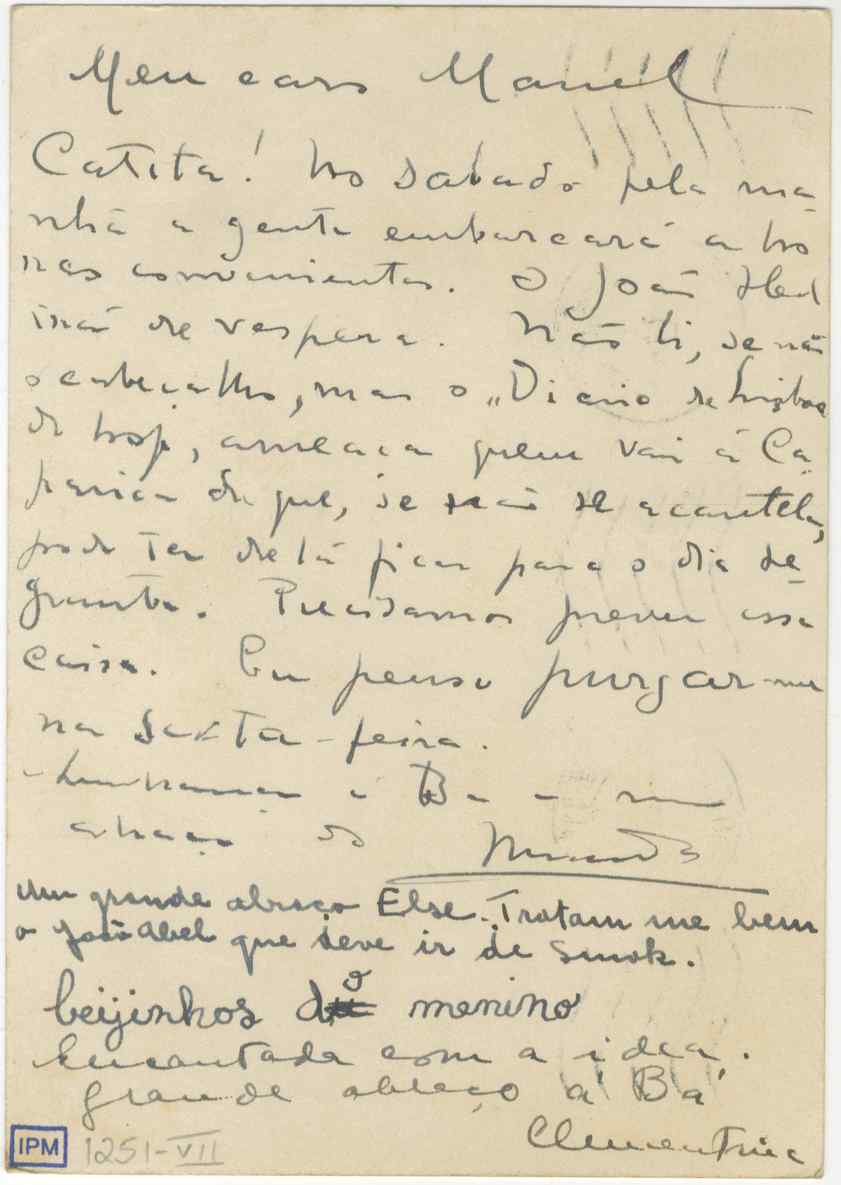 Meu caro Manel
Catita! No sabado pela ma
nhã a gente embarcará a ho
ras convenientes. O João Abel
irá de vespera. Não li, se não
o cabeçalho, mas o „Diario de Lisboa
de hoje, ameaça quem vai á Ca
parica de que, se não se acautela,
pode ter de lá ficar para o dia se
guinte. Precisamos prever essa
coisa. Eu penso purgar-me
na sexta-feira.
Lembranças á Ba e um
abraço do
Um grande abraço Else. Tratam me bem
o João Abel que deve ir de smok.
beijinhos do menino
Encantada com a idea.
Grande abraço á Bá
Clementina
IPM 1251-VII